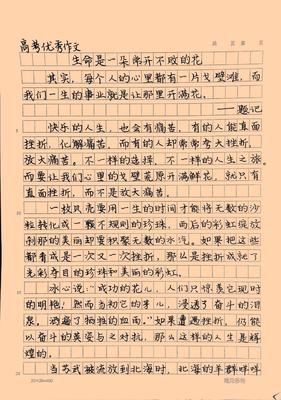 高考优秀作文
生命是一朵常开不败的花
其实，每个人的心里都有一片戈壁滩，而
我们一生的事业就是让那里开满花。
——题记
快乐的人生，也会有痛苦，有的人能直面
挫折，化解痛苦，而有的人却常常夸大挫折，
放大痛苦。不一样的选择，不一样的人生之旅。
而要让我们心里的戈壁荒原开满鲜花，就只有
直面挫折，而不是放大痛苦。
一枚贝壳要用一生的时间才能将无数的沙
粒转化成一颗不规则的珍珠，雨后的彩虹绽放
刹那的美丽却要积聚无数的水汽。如果把这些
都看成是一次又一次挫折，那么是挫折成就了
光彩夺目的珍珠和美丽的彩虹。
冰心说：“成功的花儿，人们只惊羡它现时
的明艳！然而当初它的芽儿，浸透了奋斗的泪
泉，洒遍了牺牲的血雨。”如果遭遇挫折，仍能
以奋斗的英姿与之对抗，那么这样的人生是辉
煌的。
当苏武被流放到北海时，北海的羊群咩咩